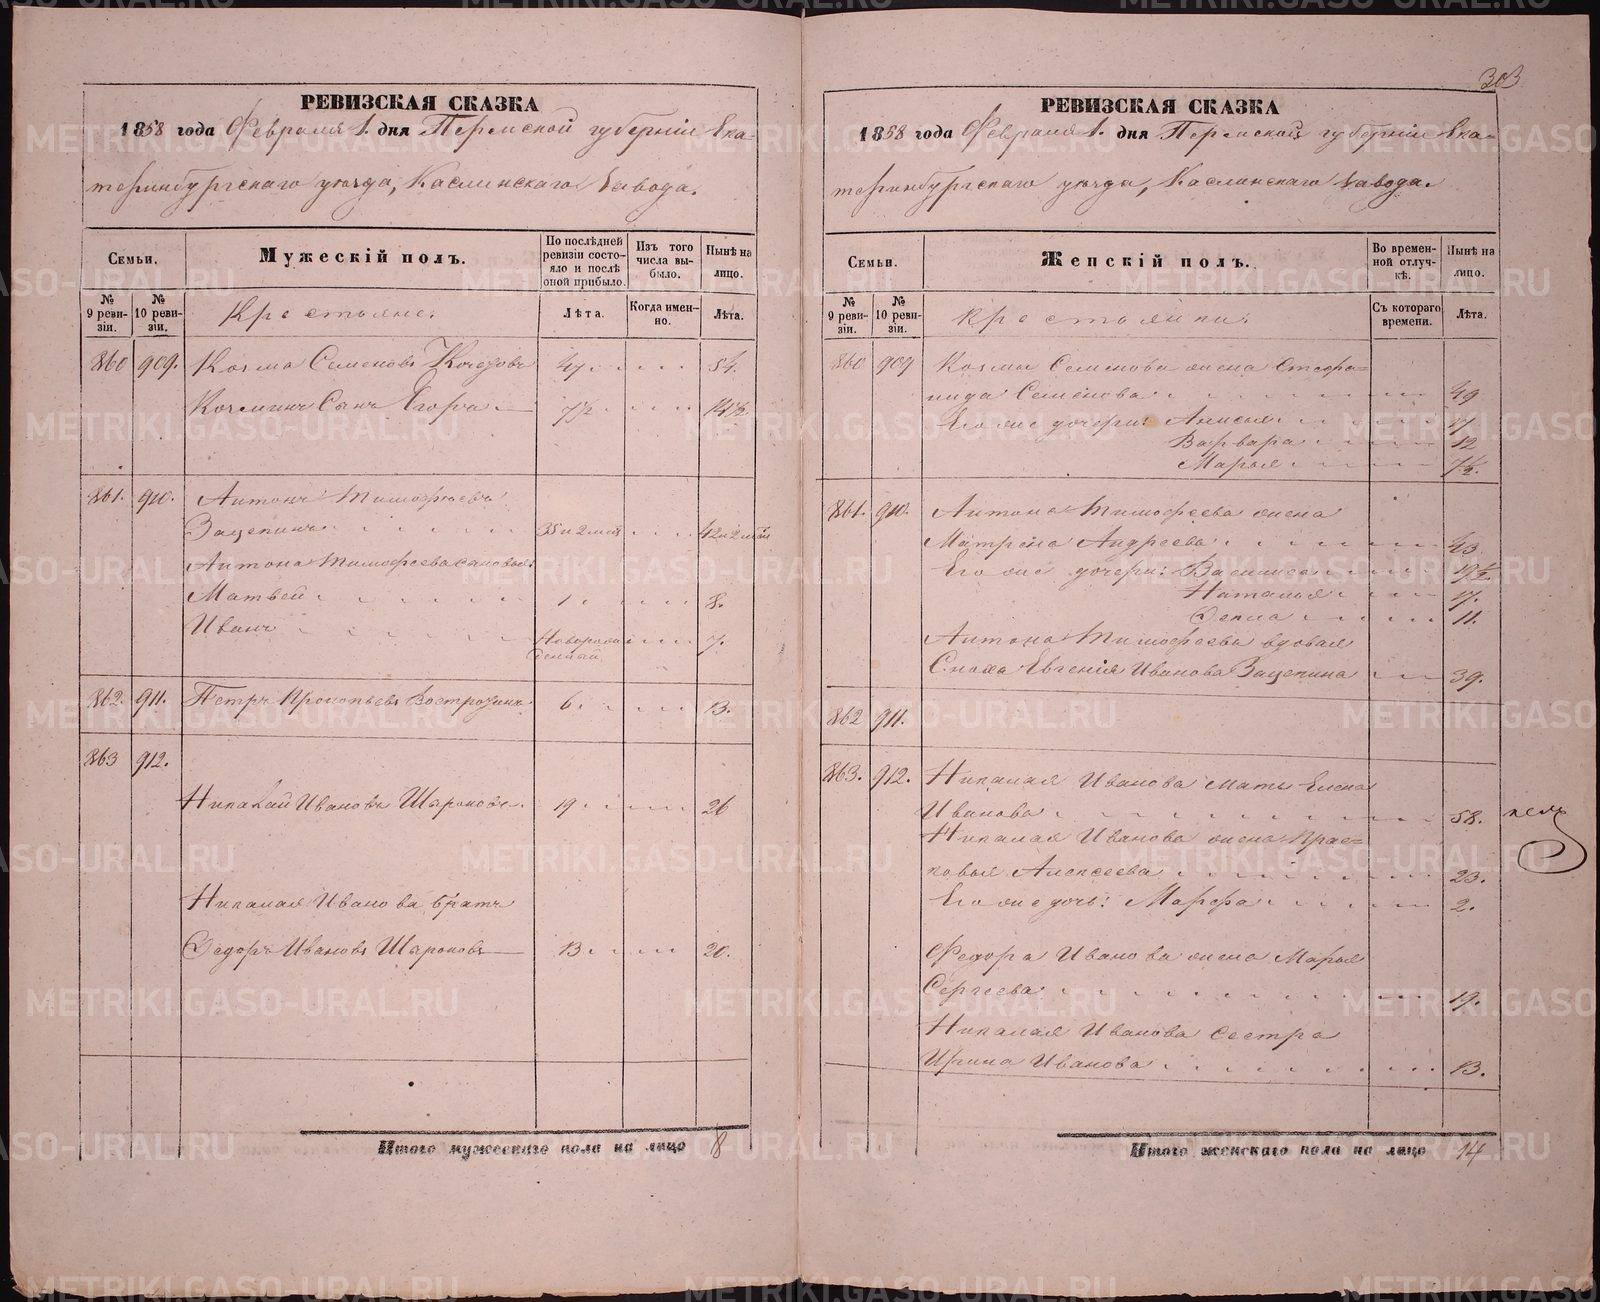 РЕВИЗСКАЯ СКАЗКА
1858 года Февраля 1. дня Пермской губернiи Ека-
теринбургскаго уѣзда, Каслинскаго Завода.
Семьи.
Мужескiй полъ.
По послѣдней ревизiи состо-яло и послѣ оной прибыло.
Изъ того числа вы-было.
Нынѣ на лицо.
№ 9 реви-зiи.
№ 10 реви-зiи.
Крестьяне.
Лѣта.
Когда имен-но.
Лѣта.
860 909. Козма Семеновъ 47 54.
Козминъ Сынъ Егоръ 7½ 14½
861. 910. Антонъ Тимофѣевъ
Зацепинъ 35 и 2 мѣс 42 и 2 мѣс
Антона Тимофеева сыновья:
Матвей 1 8.
Иванъ Новорож-денный 7.
862. 911. Петръ Прокопьевъ Востротинъ 6. 13.
863 912.
Николай Ивановъ Широковъ. 19. 26
Николая Иванова братъ
Ѳедоръ Ивановъ Широковъ 13 20.
Итого мужескаго пола на лицо 8
303
РЕВИЗСКАЯ СКАЗКА
1858 года Февраля 1. дня Пермской губернiи Ека-
теринбургскаго уѣзда, Каслинскаго Завода.
Семьи.
Женскiй полъ.
Во времен-ной отлуч-кѣ.
Нынѣ на лицо.
№ 9 реви-зiи.
№ 10 реви-зiи.
Крестьянки.
Съ котораго времени.
Лѣта.
860 909 Козмы Семенова жена Стефа-
нида Семенова 49
Его же дочери: Анисья 17
Варвара 12
Марья 7½.
861. 910. Антона Тимофеева жена
Матрена Андреева 43
Его же дочери: Василиса 19½
Наталья 17.
11.
Антона Тимофеева вдовая
Сноха Евгенiя Иванова Зацепина 39.
862 911.
863. 912. Николая Иванова мать Елена
Иванова 58.
Николая Иванова жена Прас-
ковья Алексеева 23.
Его же дочь: Марфа 2.
Федора Иванова жена Марья
Сергеева 19.
Николая Иванова сестра
Ирина Иванова 13.
Итого женскаго пола на лицо 14
METRIKI.GASO-URAL.RU